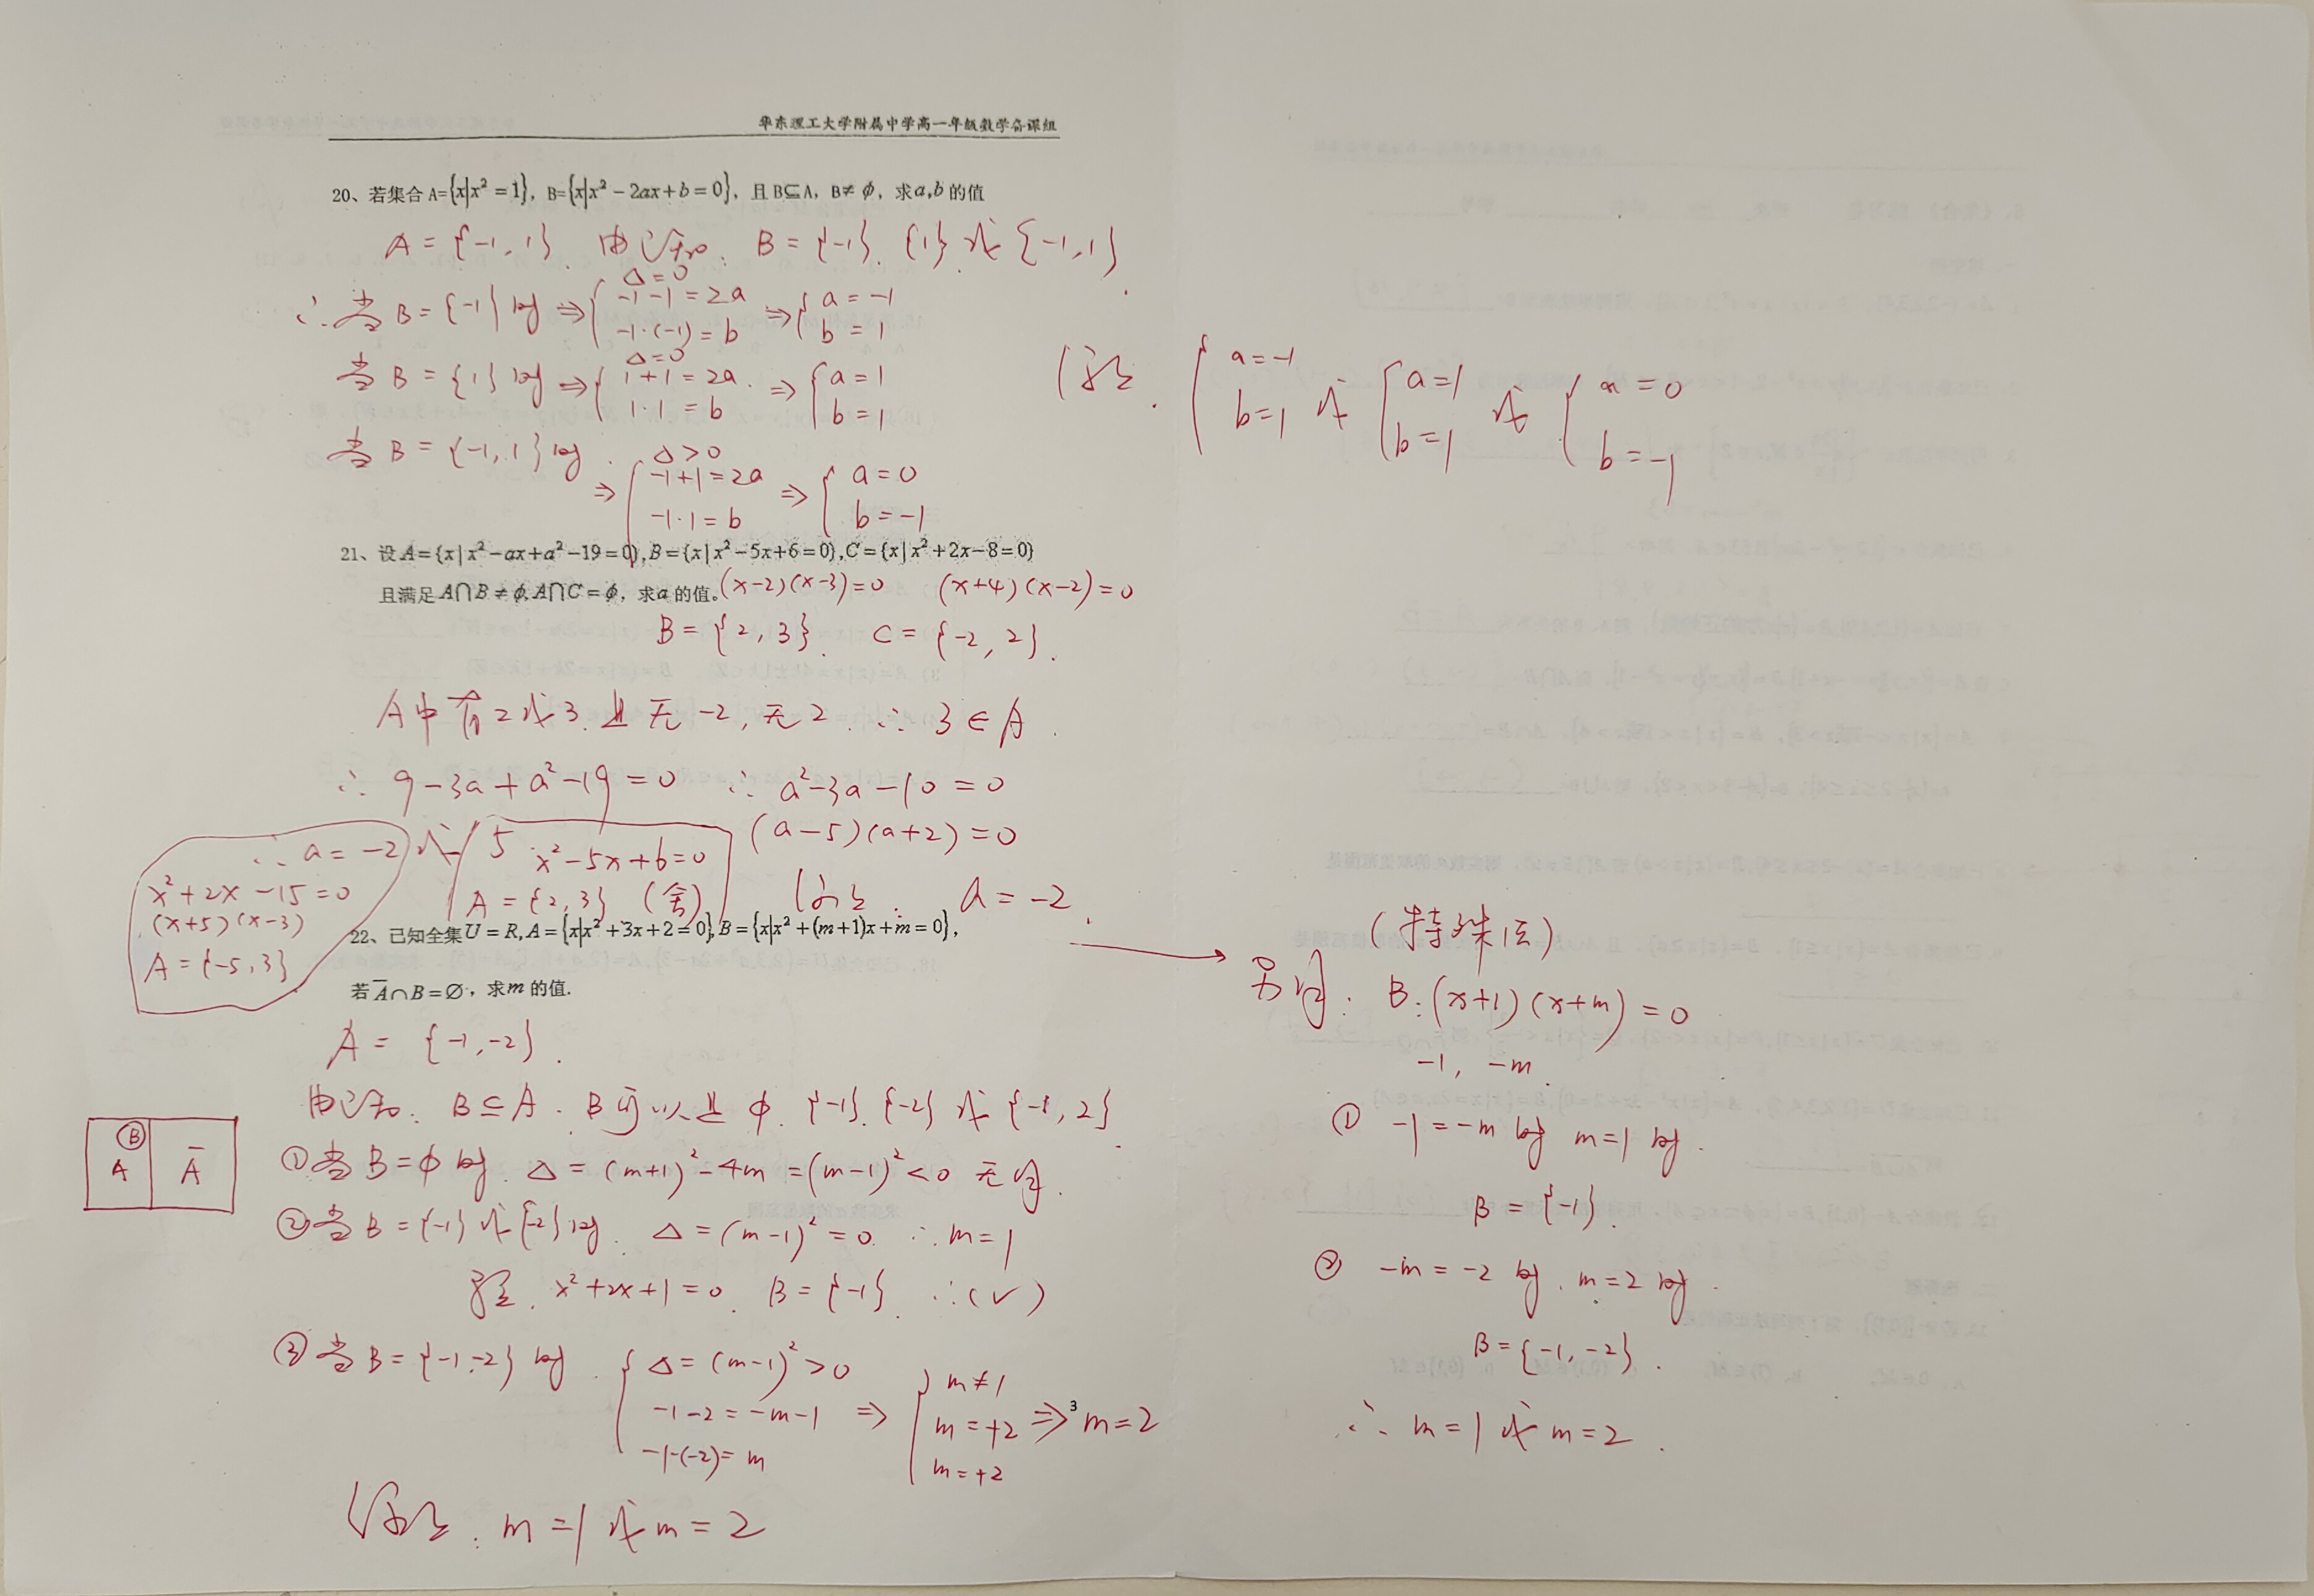 华东理工大学附属中学高一年级数学备课组
20、若集合 A={x|x²=1}，B={x|x²-2ax+b=0}，且 B⊆A，B≠ϕ，求a,b的值
A={-1,1}. 由已知. B={-1}. {1}或{-1,1}.
∴当B={-1}时⇒{Δ=0
-1-1=2a
-1·(-1)=b ⇒{a=-1
b=1
当B={1}时⇒{Δ=0
1+1=2a.
1·1=b ⇒{a=1
b=1
当B={-1,1}时.
⇒{Δ>0
-1+1=2a
-1·1=b ⇒{a=0
b=-1
综上. {a=-1
b=1 或 {a=1
b=1 或 {a=0
b=-1
21、设A={x|x²-ax+a²-19=0},B={x|x²-5x+6=0},C={x|x²+2x-8=0}
且满足A∩B≠ϕ,A∩C=ϕ，求a的值。(x-2)(x-3)=0 (x+4)(x-2)=0
B={2,3}. C={-2,2}.
A中有2或3.且无-2,无2.∴3∈A.
∴9-3a+a²-19=0 ∴a²-3a-10=0
(a-5)(a+2)=0
∴a=-2或5
x²+2x-15=0
(x+5)(x-3)
A={-5,3}
x²-5x+6=0
A={2,3} (舍)
综上. a=-2.
22、已知全集U=R,A={x|x²+3x+2=0},B={x|x²+(m+1)x+m=0},
若A̅∩B=∅，求m的值.
A={-1,-2}.
由已知. B⊆A. B可以是ϕ. {-1}.{-2}或{-1,2}.
B
A A̅
①当B=ϕ时. Δ=(m+1)²-4m=(m-1)²<0 无解.
②当B={-1}或{-2}时. Δ=(m-1)²=0. ∴m=1
验. x²+2x+1=0. B={-1} ∴(✓)
③当B={-1,-2}时. {Δ=(m-1)²>0
-1-2=-m-1
-1·(-2)=m ⇒{m≠1
m=+2
m=+2 ⇒m=2
3
综上. m=1或m=2
(特殊法)
另解. B:(x+1)(x+m)=0
-1, -m.
① -1=-m时 m=1时.
B={-1}.
② -m=-2时. m=2时.
B={-1,-2}.
∴m=1或m=2.